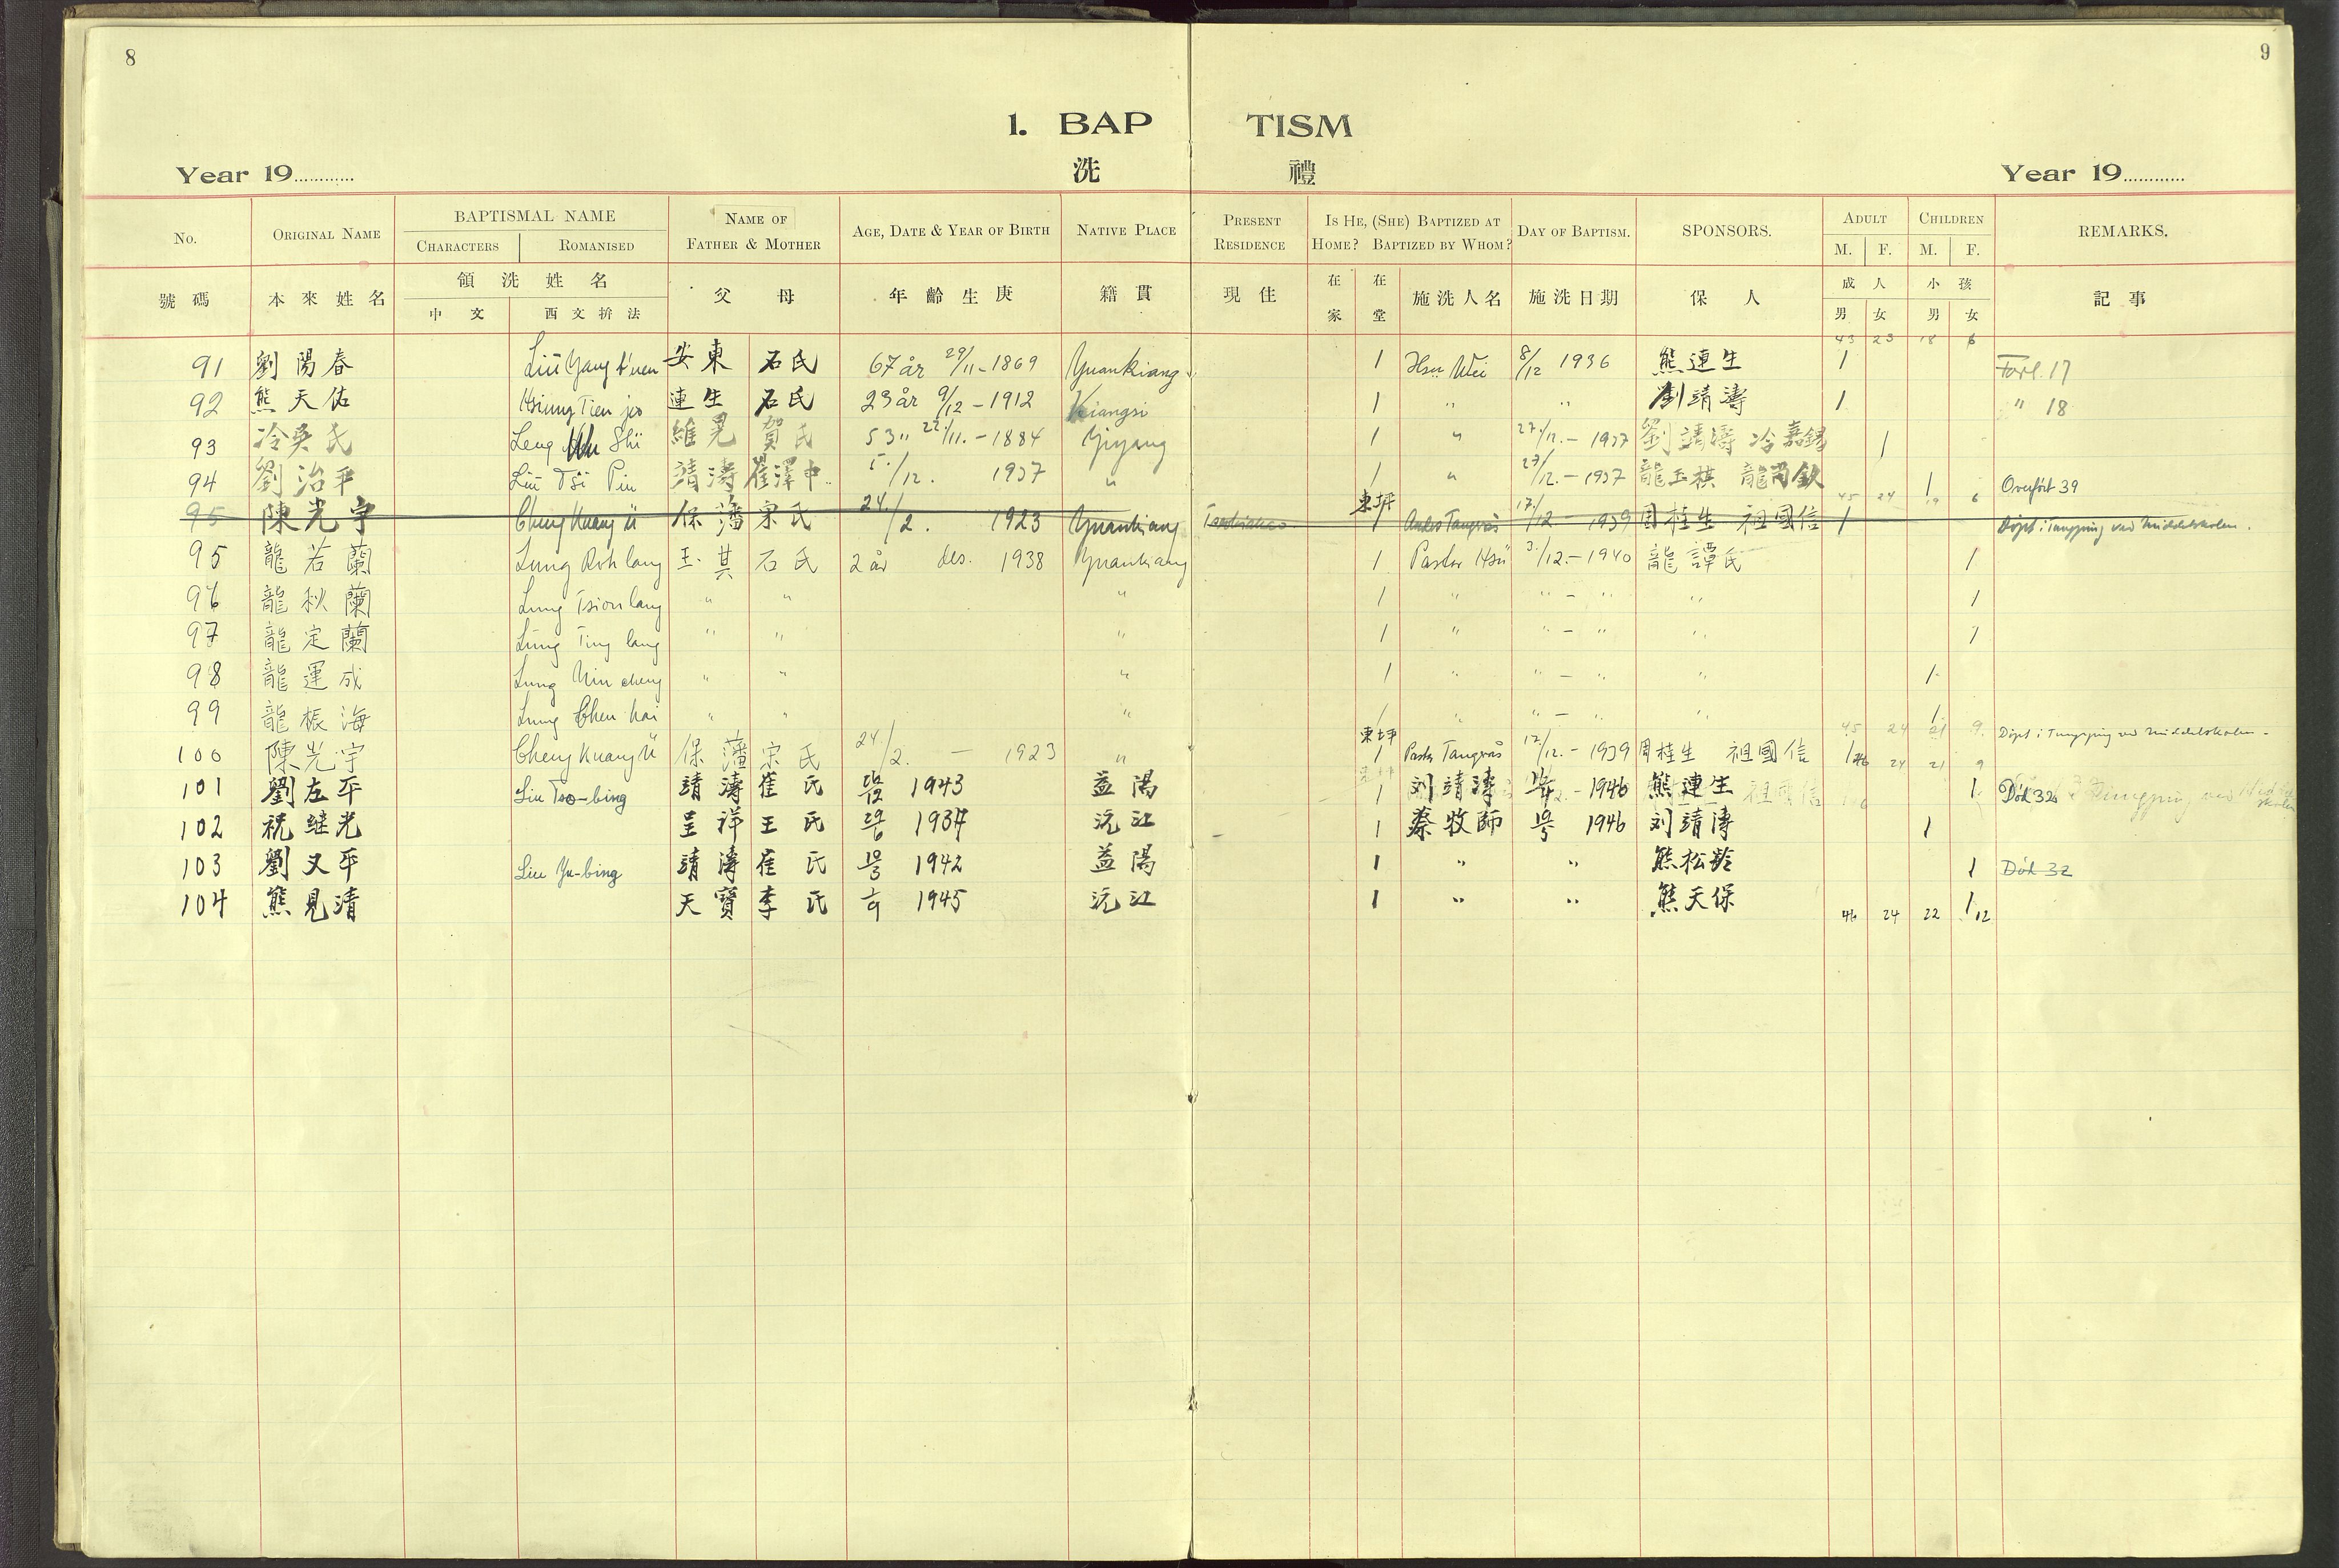 8
9
1. BAP TISM
Year 19............
洗 禮
Year 19............
No. ORIGINAL NAME BAPTISMAL NAME NAME OF FATHER & MOTHER AGE, DATE & YEAR OF BIRTH NATIVE PLACE PRESENT RESIDENCE IS HE, (SHE) BAPTIZED AT HOME? BAPTIZED BY WHOM? DAY OF BAPTISM. SPONSORS. ADULT CHILDREN REMARKS.
CHARACTERS ROMANISED M. F. M. F.
號碼 本來姓名 領洗姓名 父 母 年齡生庚 籍貫 現住 在家 在堂 施洗人名 施洗日期 保 人 成人 小孩 記事
中 文 西文拚法 男 女 男 女
43 23 18 6
91 劉陽春 Liu Yang t'uen 安東 石氏 67 år 29/11-1869 Yuankiang 1 Hsu Wei 8/12 1936 熊連生 1 Forl. 17
92 熊天佑 Hsiung Tien jeo 連生 石氏 23 år 9/12-1912 Kiangsi 1 " " 劉靖濤 1 " 18
93 冷吳氏 Leng Wu Shï 維晃 賀氏 53 " 22./11.-1884 Yiyang 1 " 27./12.-1937 劉靖濤 冷嘉錫 1
94 劉治平 Liu Tsï Pin 靖濤 崔澤中 5./12. 1937 " 1 " 27/12.-1937 龍玉棋 龍尚欽 1 Overført 39
東坪 45 24 19 6
95 陳光宇 Cheng Kuang Ü 保藩 宋氏 24./2. 1923 Yuankiang 1 Anders Tangraas 17./12.-1939 周桂生 祖國信 1 Døpt i Tungping ved Middelskolen.
95 龍若蘭 Lung Roh lang 玉其 石氏 2 år des. 1938 Yuankiang 1 Pastor Hsü 3./12.-1940 龍譚氏 1
96 龍秋蘭 Lung Tsiou lang " " " 1 " " - " " 1
97 龍定蘭 Lung Ting lang " " " 1 " " - " " 1
98 龍運成 Lung Uin cheng " " " 1 " " - " " 1
99 龍振海 Lung Chen hai " " " 1 " " - " " 1
東坪 45 24 21 9
100 陳光宇 Cheng Kuang Ü 保藩 宋氏 24./2. - 1923 " 1 Pastor Tangraas 17./12.-1939 周桂生 祖國信 1 46 24 21 9 Døpt i Tungping ved Middelskolen-
101 劉左平 Liu Tso-bing 靖濤 崔氏 1943 益陽 1 刘靖濤 1946 熊連生 1 Död 32
102 祝继光 呈祥 王氏 29/6 1937 沅江 1 蔡牧師 1946 刘靖濤 1
103 劉又平 Liu Yu-bing 靖濤 崔氏 1942 益陽 1 " " 熊松龄 1 Död 32
104 熊見清 天寶 李氏 1945 沅江 1 " " 熊天保 1
46 24 22 12